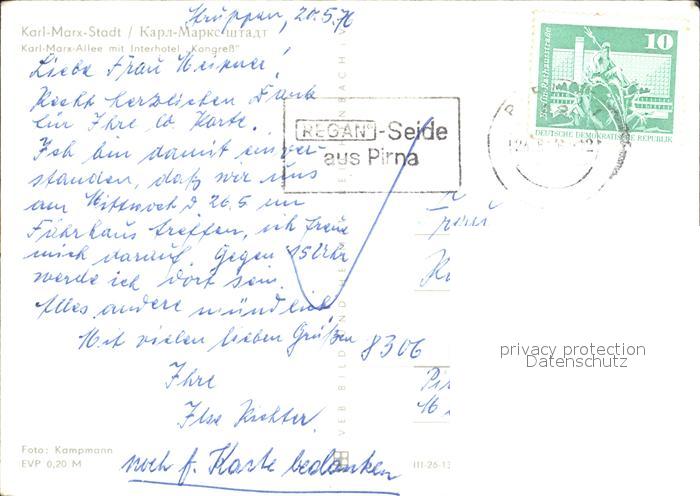 Struppen, 20.5.76
Karl-Marx-Stadt / Карл-Маркс-Штадт
Karl-Marx-Allee mit Interhotel „Kongreß"
Liebe Frau
Recht herzlichen Dank
für Ihre lb Karte.
Ich bin damit einver-
standen, daß wir uns
am Mittwoch d 26.5 im
Fährhaus treffen, ich freue
mich darauf. Gegen 15 Uhr
werde ich dort sein.
Alles andere mündlich
Mit vielen lieben Grüßen
Ihre
Ilse Richter.
noch f. Karte bedanken
Foto: Kampmann
EVP 0,20 M
VEB BILD UND HEIM REICHENBACH
III-26-13
REGAN-Seide
aus Pirna
10
DEUTSCHE DEMOKRATISCHE REPUBLIK
Frau
8306
Pir
privacy protection
Datenschutz